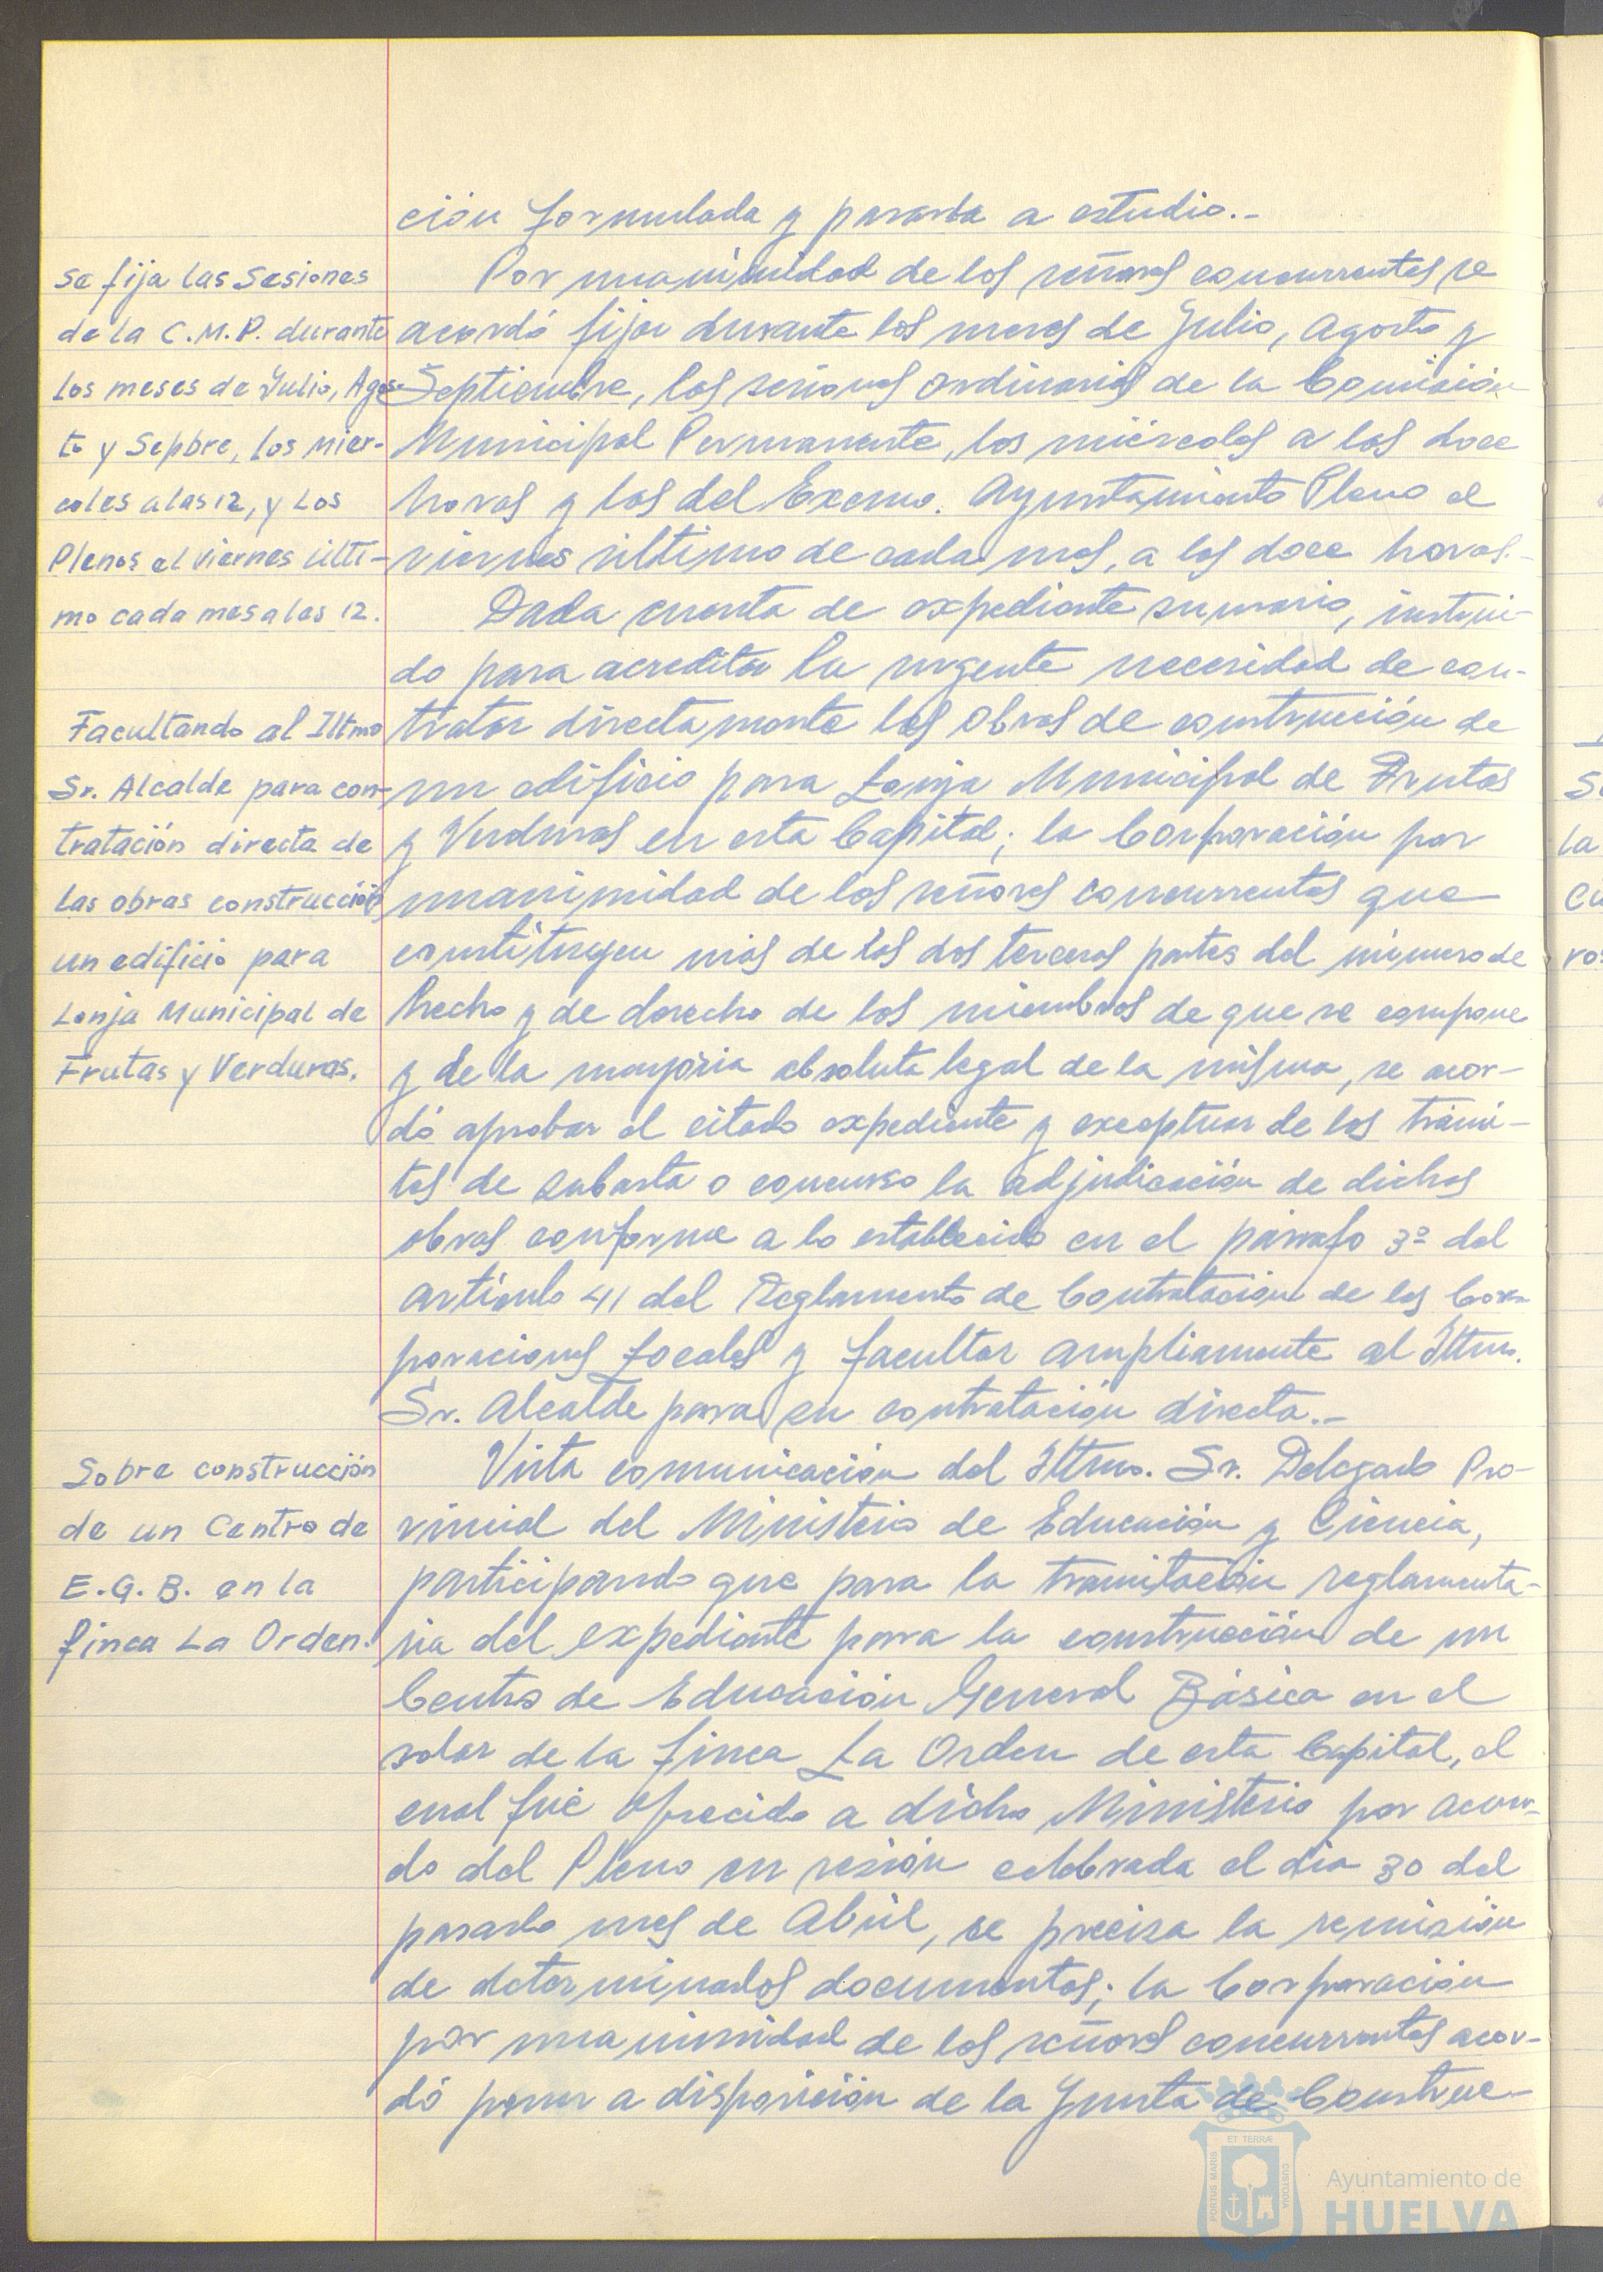 ción formulada y pasarla a estudio.-
Se fija las Sesiones
de la C.M.P. durante
los meses de Julio, Agos-
to y Sepbre, los mier-
coles a las 12, y los
Plenos el viernes ulti-
mo cada mes a las 12.
Por unanimidad de los señores concurrentes se
acordó fijar durante los meses de Julio, Agosto y
Septiembre, las sesiones ordinarias de la Comisión
Municipal Permanente, los miércoles a las doce
horas y las del Excmo. Ayuntamiento Pleno el
viernes último de cada mes, a las doce horas.-
Facultando al Iltmo
Sr. Alcalde para con-
tratación directa de
las obras construcción
un edificio para
Lonja Municipal de
Frutas y Verduras.
Dada cuenta de expediente sumario, instrui-
do para acreditar la urgente necesidad de con-
tratar directamente las obras de construcción de
un edificio para Lonja Municipal de Frutas
y Verduras en esta Capital; la Corporación por
unanimidad de los señores concurrentes que
constituyen más de las dos terceras partes del número de
hecho y de derecho de los miembros de que se compone
y de la mayoria absoluta legal de la misma, se acor-
dó aprobar el citado expediente y exceptuar de los trámi-
tes de subasta o concurso la adjudicación de dichas
obras conforme a lo establecido en el párrafo 3º del
artículo 41 del Reglamento de Contratación de las Cor-
poraciones Locales y facultar ampliamente al Iltmo.
Sr. Alcalde para su contratación directa.-
Sobre construcción
de un Centro de
E.G.B. en la
finca La Orden.
Vista comunicación del Iltmo. Sr. Delegado Pro-
vincial del Ministerio de Educación y Ciencia,
participando que para la tramitación reglamenta-
ria del expediente para la construcción de un
Centro de Educación General Básica en el
solar de la finca La Orden de esta Capital, el
cual fué ofrecido a dicho Ministerio por acuer-
do del Pleno en sesión celebrada el dia 30 del
pasado mes de Abril, se precisa la remisión
de determinados documentos; la Corporación
por unanimidad de los señores concurrentes acor-
dó poner a disposición de la Junta de Construc-
PORTUS MARIS
ET TERRÆ
CUSTODIA
Ayuntamiento de
HUELVA